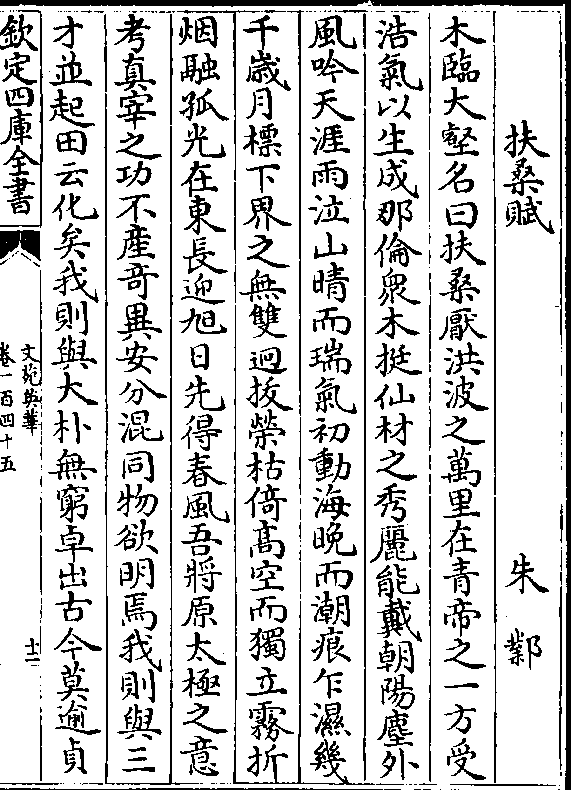 扶桑賦　朱鄴
木臨大壑名曰扶桑厭洪波之萬里在青帝之一方受
浩氣以生成那倫衆木挺仙材之秀麗能戴朝陽塵外
風吟天涯雨泣山晴而瑞氣初動海晚而潮痕乍濕幾
千歲月標下界之無雙迥拔榮枯倚髙空而獨立霧折
烟融孤光在東長迎旭日先得春風吾將原太極之意
考真宰之功不產竒異安分混同物欲明焉我則與三
才並起田云化矣我則與大朴無窮卓出古今莫逾貞
欽定四庫全書
文苑英華
卷一百四十五
十二